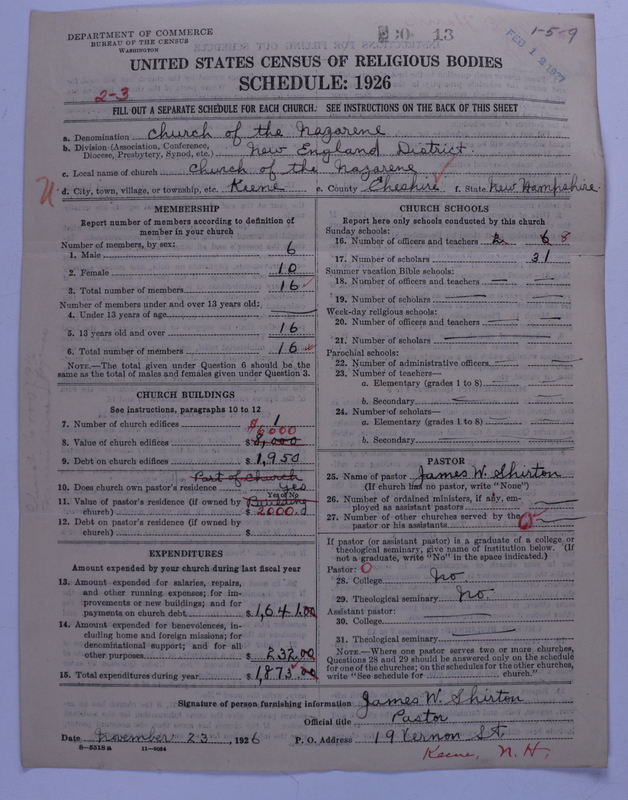 DEPARTMENT OF COMMERCE
BUREAU OF THE CENSUS
WASHINGTON
13
FEB 1 2 1927
1-5-9
UNITED STATES CENSUS OF RELIGIOUS BODIES
SCHEDULE: 1926
2-3
FILL OUT A SEPARATE SCHEDULE FOR EACH CHURCH. SEE INSTRUCTIONS ON THE BACK OF THIS SHEET
a. Denomination Church of the Nazarene
b. Division (Association, Conference, Diocese, Presbytery, Synod, etc.) New England District.
c. Local name of church Church of the Nazarene
d. City, town, village, or township, etc. Keene e. County Cheshire f. State New Hampshire.
MEMBERSHIP
Report number of members according to definition of
member in your church
Number of members, by sex:
1. Male 6
2. Female 10
3. Total number of members 16
Number of members under and over 13 years old:
4. Under 13 years of age
5. 13 years old and over 16
6. Total number of members 16
NOTE.—The total given under Question 6 should be the
same as the total of males and females given under Question 3.
CHURCH BUILDINGS
See instructions, paragraphs 10 to 12
7. Number of church edifices 1
6000
8. Value of church edifices $ 8,000
9. Debt on church edifices $ 1,950
Part of Church
10. Does church own pastor's residence Yes
Yes or No
11. Value of pastor's residence (if owned by Building
church) $ 2000.
12. Debt on pastor's residence (if owned by
church) $
EXPENDITURES
Amount expended by your church during last fiscal year
13. Amount expended for salaries, repairs,
and other running expenses; for im-
provements or new buildings; and for
payments on church debt $ 1,641.00
14. Amount expended for benevolences, in-
cluding home and foreign missions; for
denominational support; and for all
other purposes $ 232.00
15. Total expenditures during year $ 1,873.00
CHURCH SCHOOLS
Report here only schools conducted by this church
Sunday schools:
16. Number of officers and teachers 2 6 8
17. Number of scholars 31
Summer vacation Bible schools:
18. Number of officers and teachers
19. Number of scholars
Week-day religious schools:
20. Number of officers and teachers
21. Number of scholars
Parochial schools:
22. Number of administrative officers
23. Number of teachers—
a. Elementary (grades 1 to 8)
b. Secondary
24. Number of scholars—
a. Elementary (grades 1 to 8)
b. Secondary
PASTOR
25. Name of pastor James W. Shirton
(If church has no pastor, write "None")
26. Number of ordained ministers, if any, em-
ployed as assistant pastors
27. Number of other churches served by the
pastor or his assistants 0
If pastor (or assistant pastor) is a graduate of a college or
theological seminary, give name of institution below. (If
not a graduate, write "No" in the space indicated.)
Pastor: 0
28. College No.
29. Theological seminary No.
Assistant pastor:
30. College
31. Theological seminary
NOTE.—Where one pastor serves two or more churches,
Questions 28 and 29 should be answered only on the schedule
for one of the churches; on the schedules for the other churches,
write "See schedule for church."
Signature of person furnishing information James W. Shirton
Official title Pastor
Date November 23, 1926 P. O. Address 19 Vernon St.
8-5518a 11-9034
Keene, N. H.